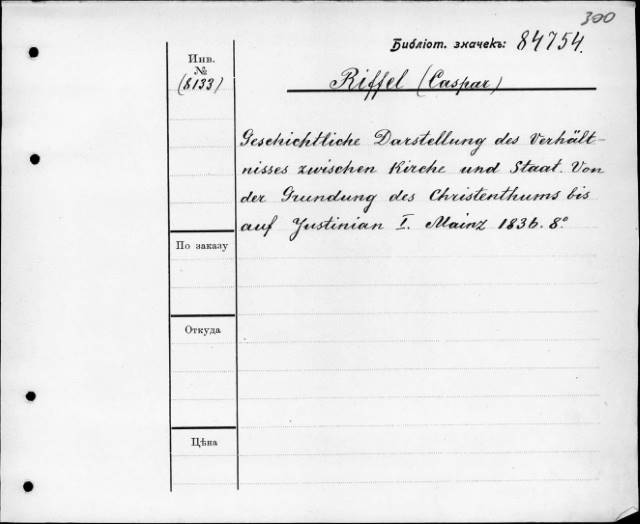 300
Библіот. значекъ: 84754.
Инв.
№
(8133)
Riffel (Caspar)
Geschichtliche Darstellung des Verhält-
nisses zwischen Kirche und Staat. Von
der Grundung des Christenthums bis
auf Justinian I. Mainz 1836. 8°.
По заказу
Откуда
Цѣна